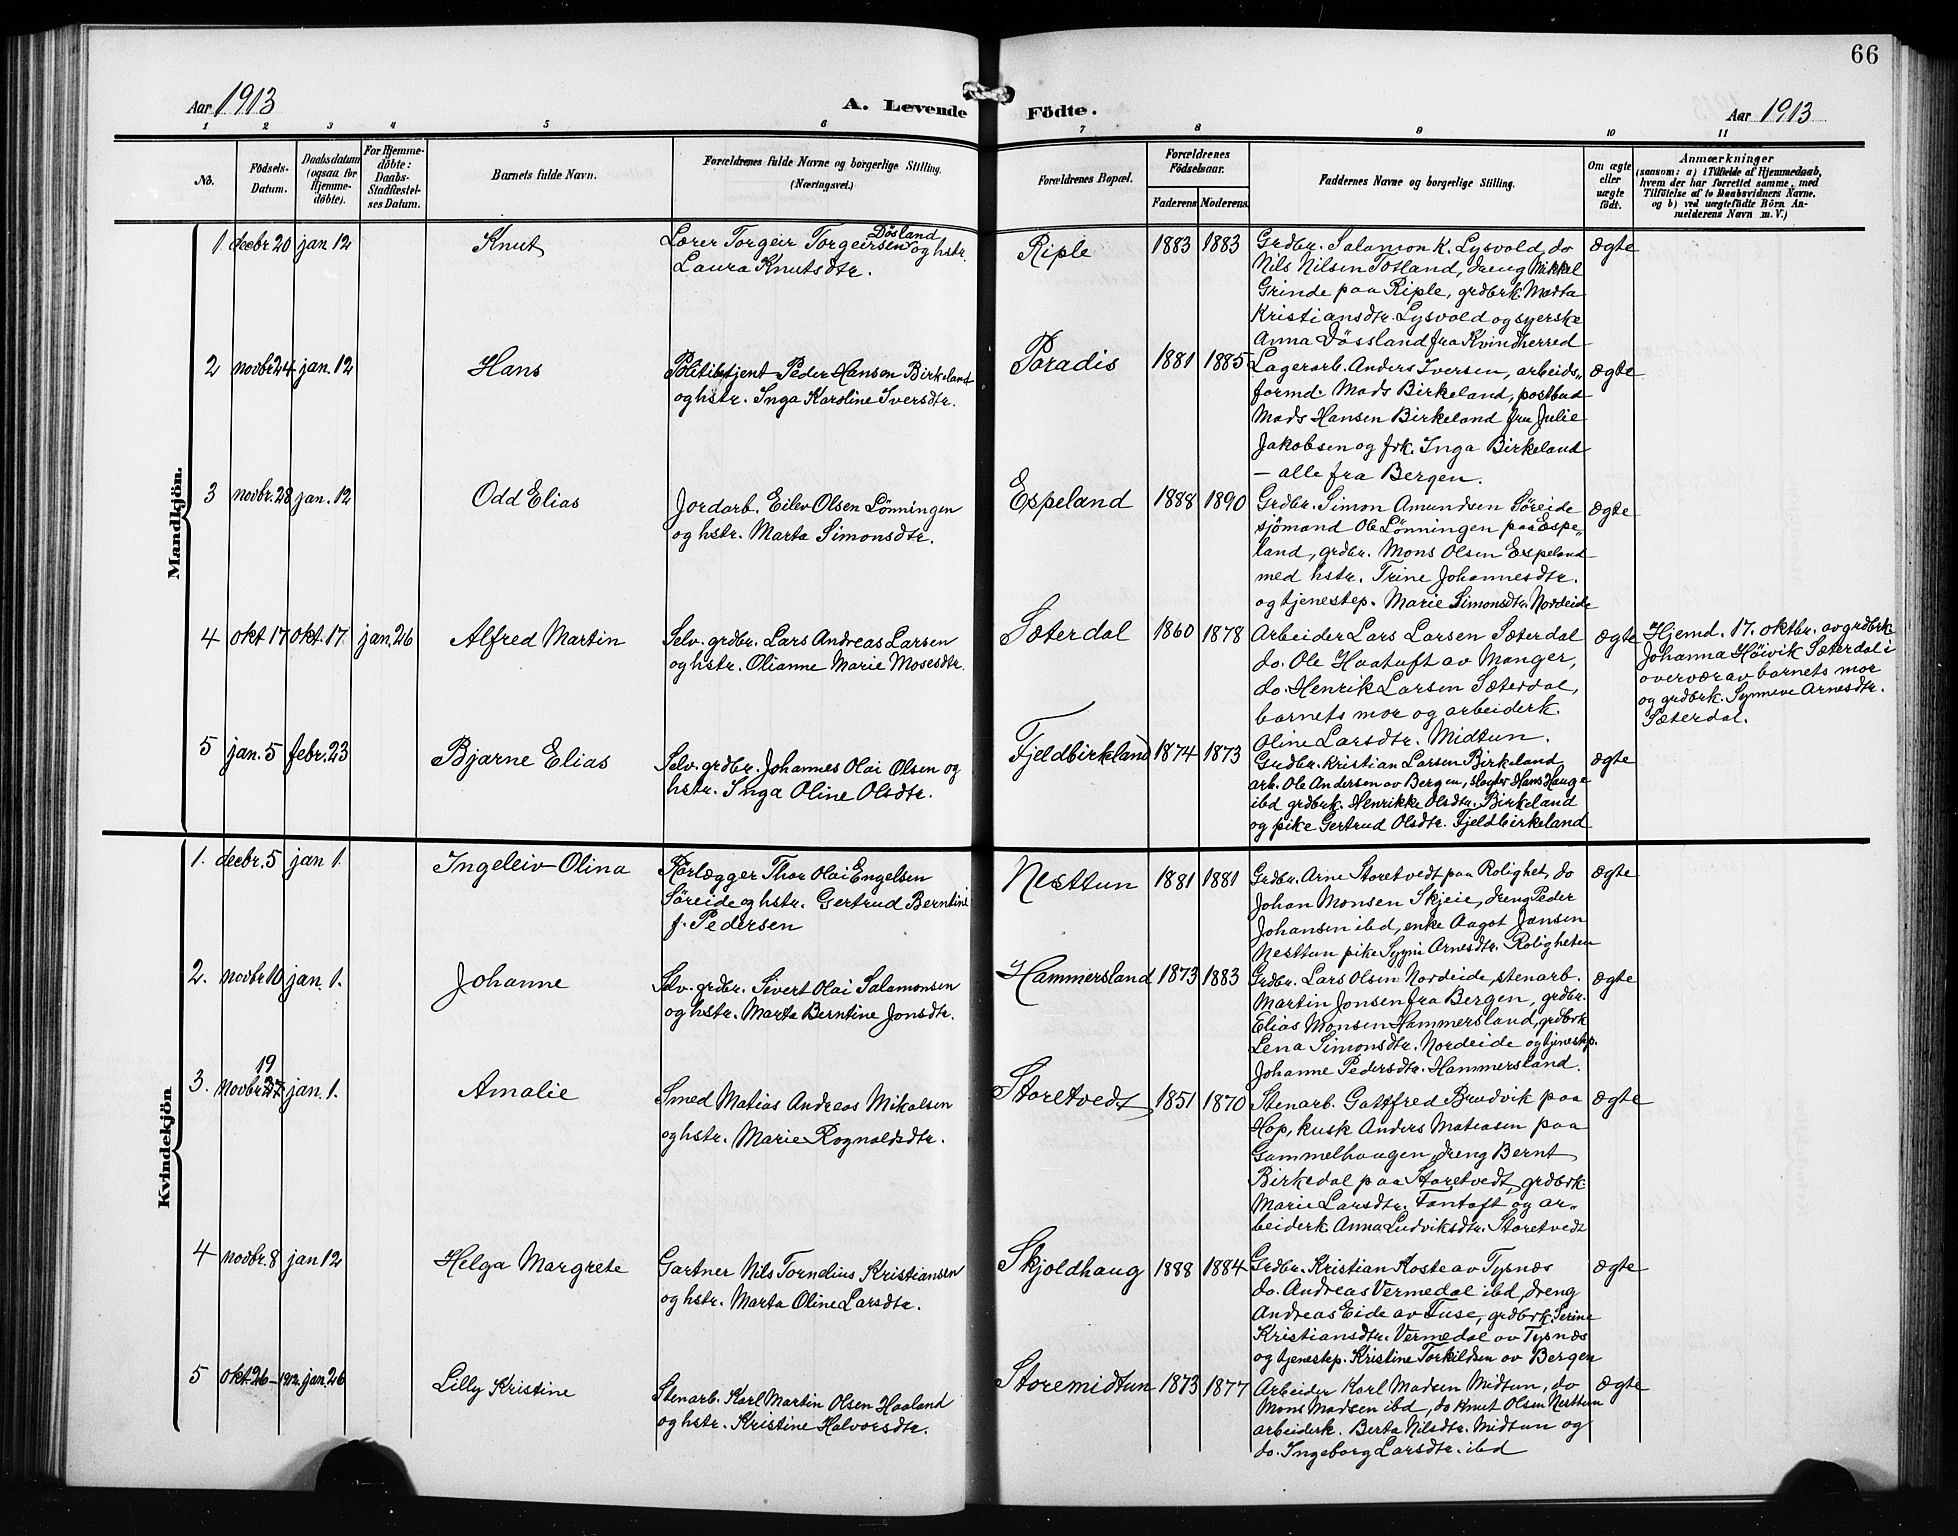 66
Aar 1913
A. Levende Födte.
Aar 1913
1 2 3 4 5 6 7 8 9 10 11
No.
Födsels-
Datum.
Daabsdatum
(ogsaa for
Hjemme-
döbte).
For Hjemme-
döbte:
Daabs-
Stadfæstel-
ses Datum.
Barnets fulde Navn.
Forældrenes fulde Navne og borgerlige Stilling.
(Næringsvei.)
Forældrenes Bopæl.
Forældrenes
Födselsaar.
Faderens Moderens
Faddernes Navne og borgerlige Stilling.
Om ægte
eller
uægte
födt.
Anmærkninger
(saasom: a) i Tilfælde af Hjemmedaab,
hvem der har forrettet samme, med
Tilföielse af to Daabsvidners Navne,
og b) ved uægtefödte Börn An-
melderens Navn m. V.)
Mandkjön.
1. decbr 20 jan 12 Knut
Lærer Torgeir Torgeirsen Døsland og hstr.
Laura Knutsdtr.
Riple 1883 1883
Grdbr. Salamon K. Lysvold, do
Nils Nilsen Totland, dreng Mikkel
Grinde paa Riple, grdbrk. Marta
Kristiansdtr. Lysvold og syerske
Anna Døssland fra Kvindherred
ægte
2 novbr 24 jan. 12 Hans
Politibetjent Peder Hansen Birkeland
og hstr. Inga Karoline Iversdtr.
Paradis 1881 1885
Lagerarb. Anders Iversen, arbeids-
formd. Mads Birkeland, postbud
Mads Hansen Birkeland fru Julie
Jakobsen og frk. Inga Birkeland
– alle fra Bergen.
ægte
3 novbr. 28 jan. 12 Odd Elias
Jordarb. Eilev Olsen Lönningen
og hstr. Marta Simonsdtr.
Espeland 1888 1890
Grdbr. Simon Amundsen Søreide
sjömand Ole Lönningen paa Espe-
land, grdbr. Mons Olsen Espeland
med hstr. Trine Johannesdtr.
og tjenestep. Marie Simonsdtr. Nordeide
ægte
4 okt 17 okt. 17. jan. 26 Alfred Martin
Selv. grdbr. Lars Andreas Larsen
og hstr. Olianne Marie Mosesdtr.
Sæterdal 1860 1878
Arbeider Lars Larsen Sæterdal
do. Ole Haatuft av Manger,
do. Henrik Larsen Sæterdal,
barnets mor og arbeiderk.
Oline Larsdtr. Midtun.
ægte
Hjemd. 17. oktbr. av grdbrk
Johanna Höivik Sæterdal i
overvær av barnets mor
og grdbrk. Synneve Arnesdtr.
Sæterdal.
5 jan. 5 febr. 23 Bjarne Elias
Selv. grdbr. Johannes Olai Olsen og
hstr. Inga Oline Olsdtr.
Fjeldbirkeland 1874 1873
Grdbr. Kristian Larsen Birkeland,
arb. Ole Andersen av Bergen, slagter Hans Hauge
ibd grdbrk. Henrikke Olsdtr. Birkeland
og pike Gertrud Olsdtr. Fjeldbirkeland
ægte
Kvindekjön
1. decbr. 5 jan 1. Ingeleiv Olina
Rörlægger Thor Olai Engelsen
Søreide og hstr. Gertrud Berntine
f. Pedersen
Nesttun 1881 1881
Grdbr. Arne Storetvedt paa Rolighet, do
Johan Monsen Skjeie, dreng Peder
Johansen ibd, enke Aagot Jansen
Nesttun pike Sygni Arnesdtr. Roligheten
ægte
2. novbr 10 jan. 1. Johanne
Selv. grdbr. Sivert Olai Salamonsen
og hstr. Marta Berntine Jonsdtr.
Hammersland 1873 1883
Grdbr. Lars Olsen Nordeide, stenarb.
Martin Jonsen fra Bergen, grdbr.
Elias Monsen Hammersland, grdbrk
Lena Simonsdtr. Nordeide og tjenestep.
Johanne Pedersdtr. Hammersland.
ægte
3. novbr. 19 jan. 1. Amalie
Smed Matias Andreas Mikalsen
og hstr. Marie Rognaldsdtr.
Storetvedt 1851 1870
Stenarb. Gottfred Brudvik paa
Hop, kusk Anders Mateasen paa
Gammelhaugen, dreng Bernt
Birkedal paa Storetvedt, grdbrk.
Marie Larsdtr. Fantoft og ar-
beiderk Anna Ludviksdtr. Storetvedt
ægte
4 novbr. 8 jan 12 Helga Margrete
Gartner Nils Tornelius Kristiansen
og hstr. Marta Oline Larsdtr.
Skjoldhaug 1888 1884
Grdbr. Kristian Koste av Tysnæs
do. Andreas Vermedal ibd, dreng
Andreas Eide av Fuse, grdbrk. Serine
Kristiansdtr. Vermedal av Tysnæs
og tjenestep. Kristine Torkildsen av Bergen
ægte
5 okt. 26 – 1912. jan. 26 Lilly Kristine
Stenarb. Karl Martin Olsen Haaland
og hstr. Kristine Halvorsdtr.
Storemidtun 1873 1877
Arbeider Karl Madsen Midtun, do
Mons Madsen ibd, do Knut Olsen Nesttun
arbeiderk. Berta Nilsdtr. Midtun og
do. Ingeborg Larsdtr. ibd
ægte